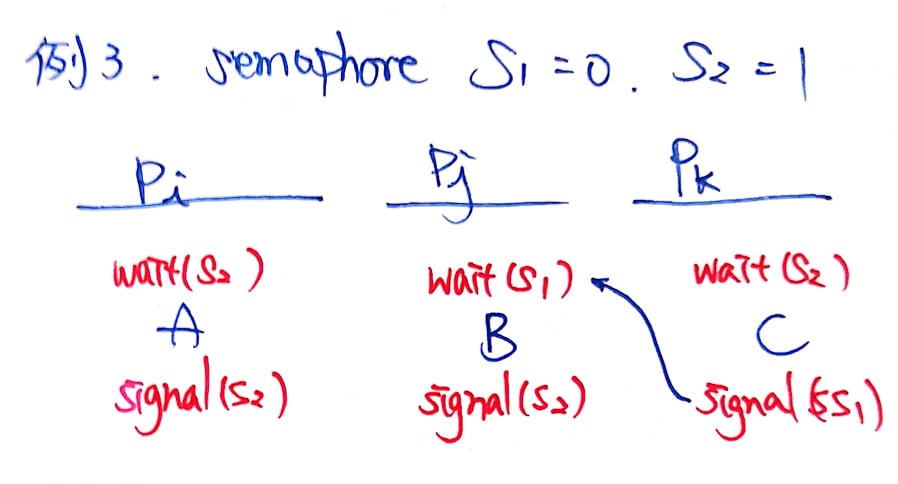 例3. semaphore S1=0. S2=1
Pi Pj Pk
wait(S2) wait(S1) wait(S2)
A B C
signal(S2) signal(S2) signal(S1)